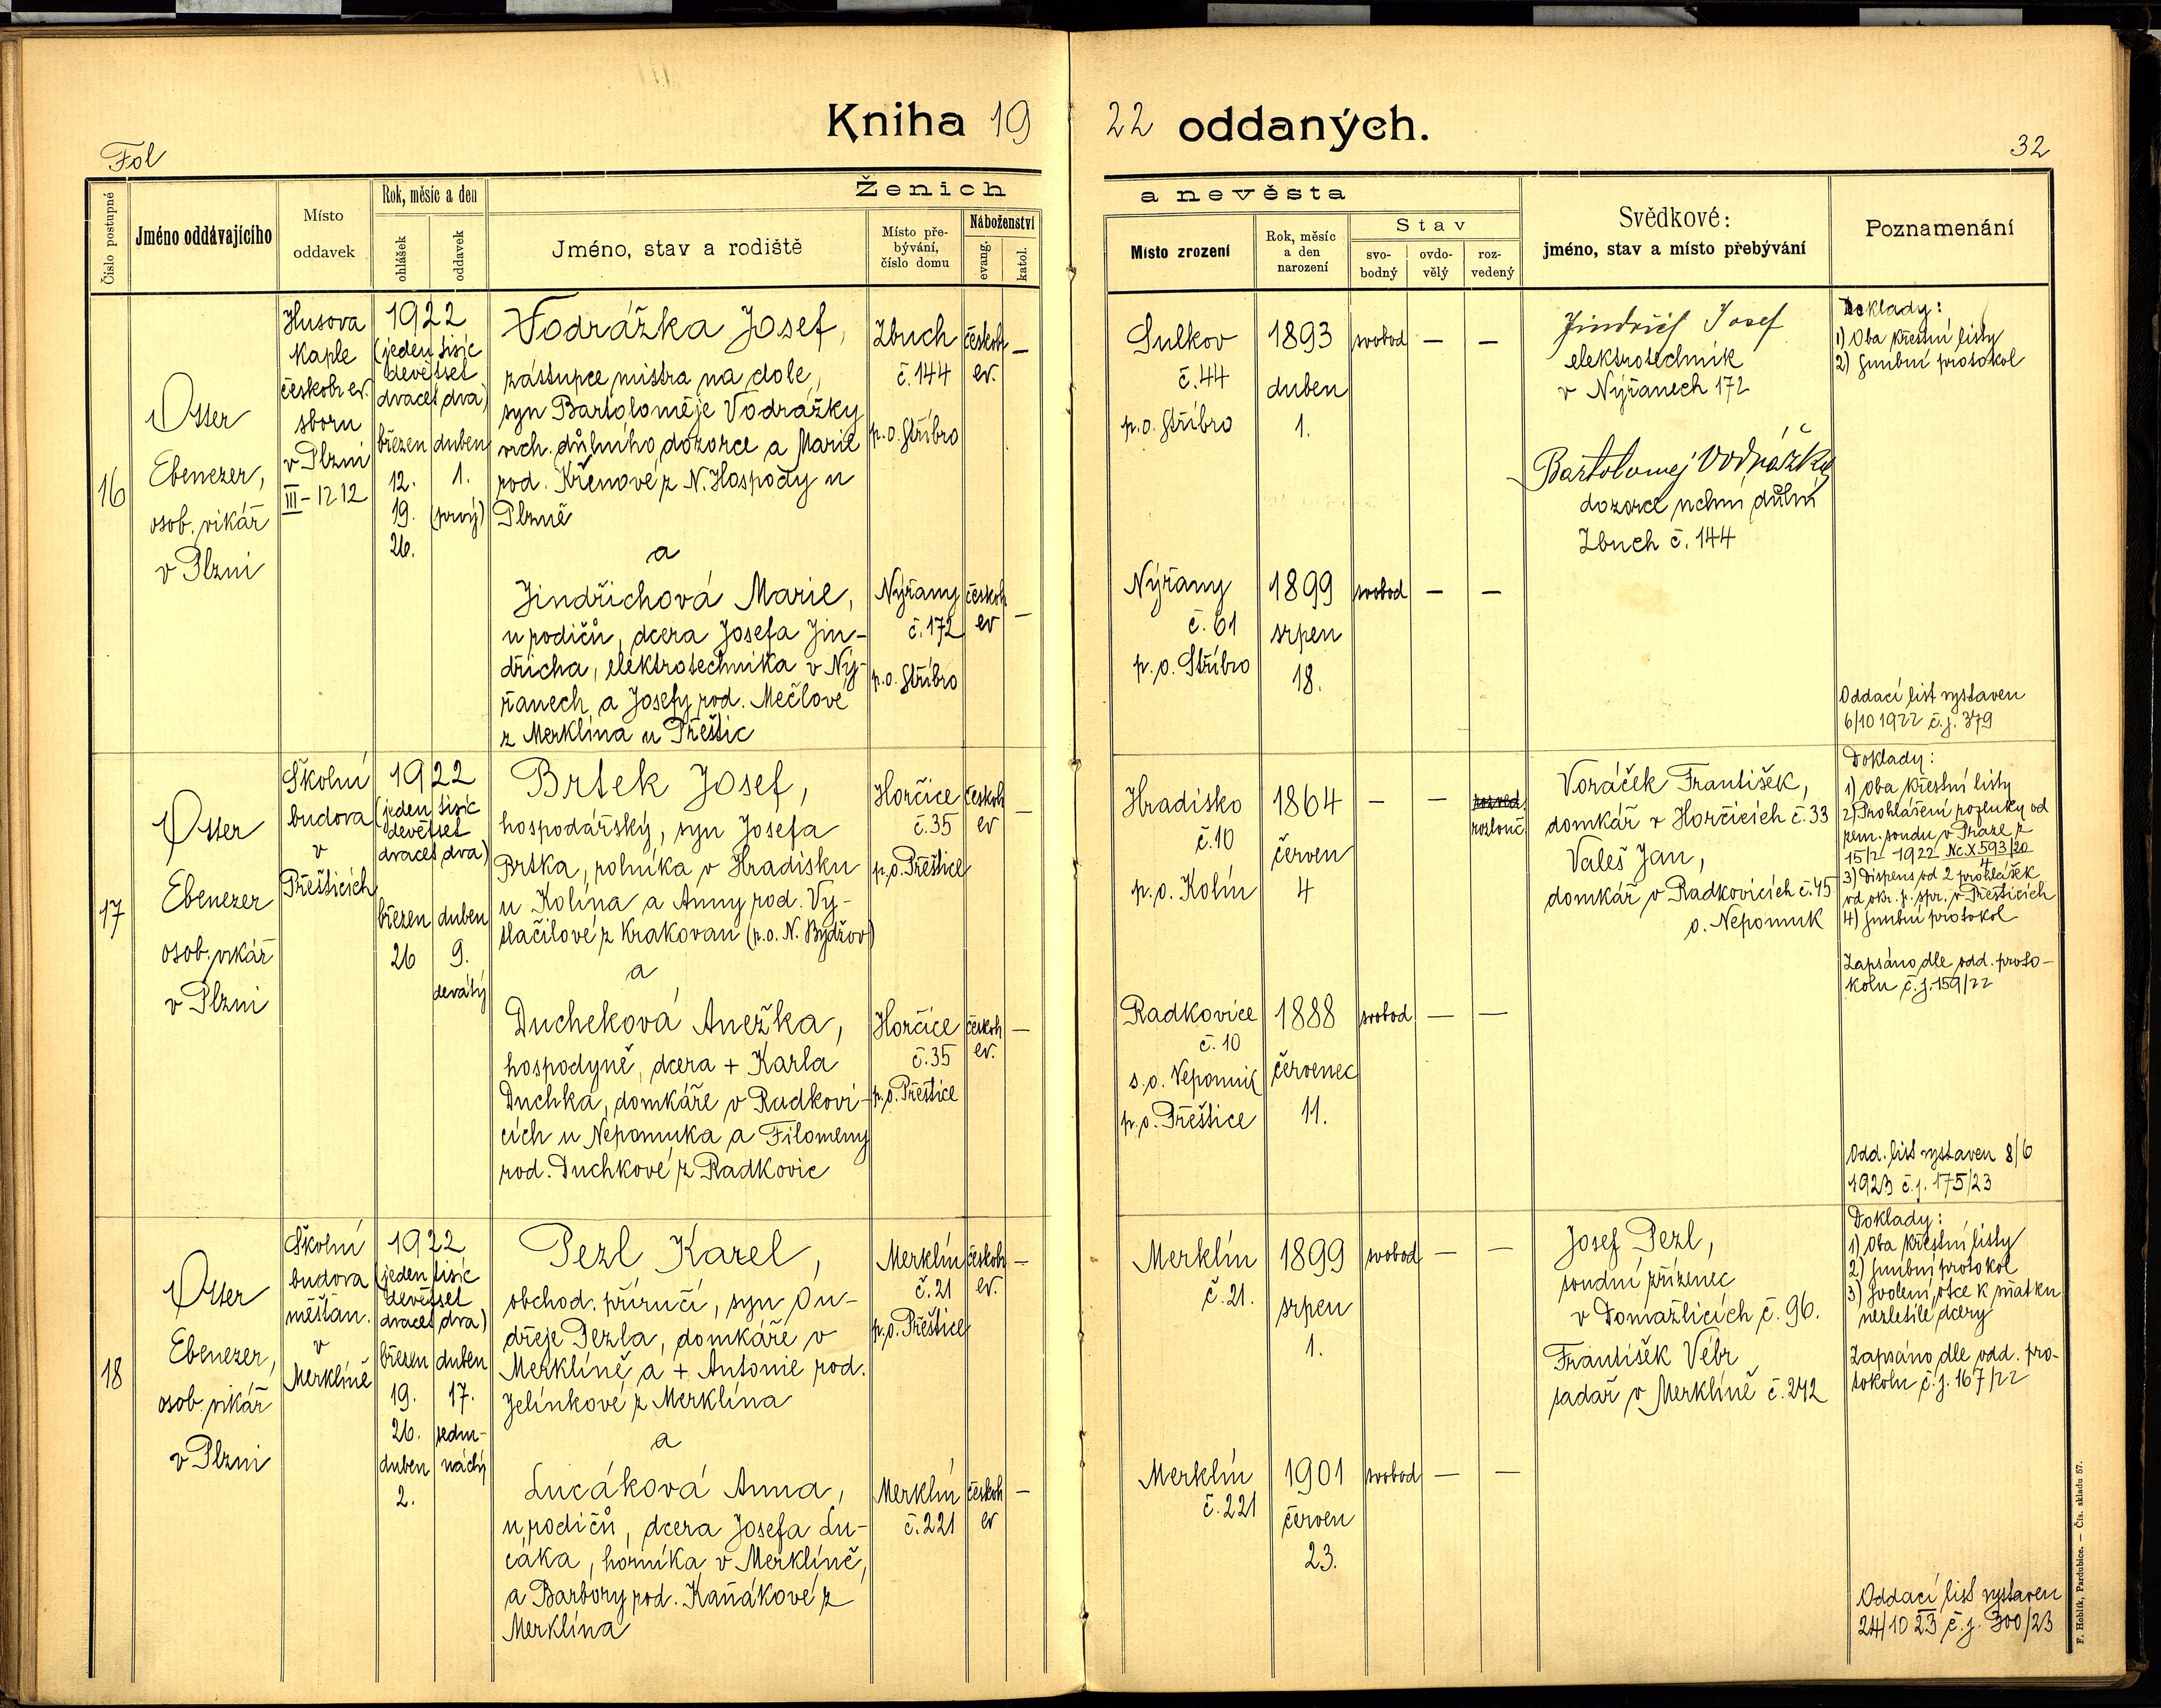 Kniha 19 22 oddaných.
Fol
32
Číslo postupné
Jméno oddávajícího
Místo
oddavek
Rok, měsíc a den
ohlášek
oddavek
Ženich
Jméno, stav a rodiště
Místo pře-
bývání,
číslo domu
Náboženství
evang.
katol.
a nevěsta
Místo zrození
Rok, měsíc
a den
narození
Stav
svo-
bodný
ovdo-
vělý
roz-
vedený
Svědkové:
jméno, stav a místo přebývání
Poznamenání
16
Otter
Ebenezer,
osob. vikář
v Plzni
Husova
kaple
českobr. ev.
sboru
v Plzni
III - 1212
1922
(jeden tisíc
devětset
dvacet dva)
březen
12.
19.
26.
duben
1.
(prvý)
Vodrážka Josef,
zástupce mistra na dole,
syn Bartoloměje Vodrážky
vrch. důlního dozorce a Marie
rod. Křenové z N. Hospody u
Plzně
a
Jindřichová Marie,
u rodičů, dcera Josefa Jin-
dřicha, elektrotechnika v Ný-
řanech, a Josefy rod. Mečlové
z Merklína u Přeštic
Zbuch
č. 144
p. o. Stříbro
českob
ev.
—
Nýřany
č. 172
p. o. Stříbro
českob
ev
—
Sulkov
č. 44
p. o. Stříbro
1893
duben
1.
svobod — —
Nýřany
č. 61
p. o. Stříbro
1899
srpen
18.
svobod — —
Jindřich Josef
elektrotechnik
v Nýřanech 172
Bartolomej Vodrážky
dozorce důlní
Zbuch č. 144
Doklady:
1) Oba křestní listy
2) Snubní protokol
Oddací list vystaven
6/10 1922 č. j. 379
17
Otter
Ebenezer
osob. vikář
v Plzni
Školní
budova
v
Přešticích
1922
(jeden tisíc
devětset
dvacet dva)
březen
26
duben
9.
devátý
Brtek Josef,
hospodářský, syn Josefa
Brtka, rolníka v Hradisku
u Kolína a Anny rod. Vy-
tlačilové z Krakovan (p. o. N. Bydžov)
a
Ducheková Anežka,
hospodyně, dcera + Karla
Duchka, domkáře v Radkovi-
cích u Nepomuka a Filomeny
rod. Duchkové z Radkovic
Horčice
č. 35
p. o. Přeštice
českob
ev
—
Horčice
č. 35
p. o. Přeštice
českob
ev.
—
Hradisko
č. 10
p. o. Kolín
1864
červen
4
— — rozved
rozlouč.
Radkovice
č. 10
s. o. Nepomuk
p. o. Přeštice
1888
červenec
11.
svobod — —
Voráček František,
domkář v Horčicích č. 33
Valeš Jan,
domkář v Radkovicích č. 45
o. Nepomuk
Doklady:
1) Oba křestní listy
2) Prohlášení rozluky od
zem. soudu v Praze z
15/2 1922 Nc X 593/20
3) Dispens od 2 prohlášek
od okr. p. spr. v Přešticích
4) Snubní protokol
Zapsáno dle odd. proto-
kolu č. j. 159/22
Odd. list vystaven 8/6
1923 č. j. 175/23
18
Otter
Ebenezer,
osob. vikář
v Plzni
Školní
budova
měšťan.
v
Merklíně
1922
(jeden tisíc
devětset
dvacet dva)
březen
19.
26.
duben
2.
duben
17.
sedm-
náctý
Pezl Karel,
obchod. příručí, syn On-
dřeje Pezla, domkáře v
Merklíně, a + Antonie rod.
Jelínkové z Merklína
a
Lucáková Anna,
u rodičů, dcera Josefa Lu-
cáka, horníka v Merklíně,
a Barbory rod. Kaňákové z
Merklína
Merklín
č. 21
p. o. Přeštice
českob
ev.
—
Merklín
č. 221
českob
ev
—
Merklín
č. 21.
1899
srpen
1.
svobod — —
Merklín
č. 221
1901
červen
23.
svobod — —
Josef Pezl,
soudní zřízenec
v Domažlicích č. 96.
František Vébr
sadař v Merklíně č. 242
Doklady:
1) Oba křestní listy
2) Snubní protokol
3) Svolení otce k sňatku
nezletilé dcery
Zapsáno dle odd. pro-
tokolu č. j. 167/22
Oddací list vystaven
24/10 23 č. j. 300/23
F. Hoblík, Pardubice. — Čís. skladu 57.